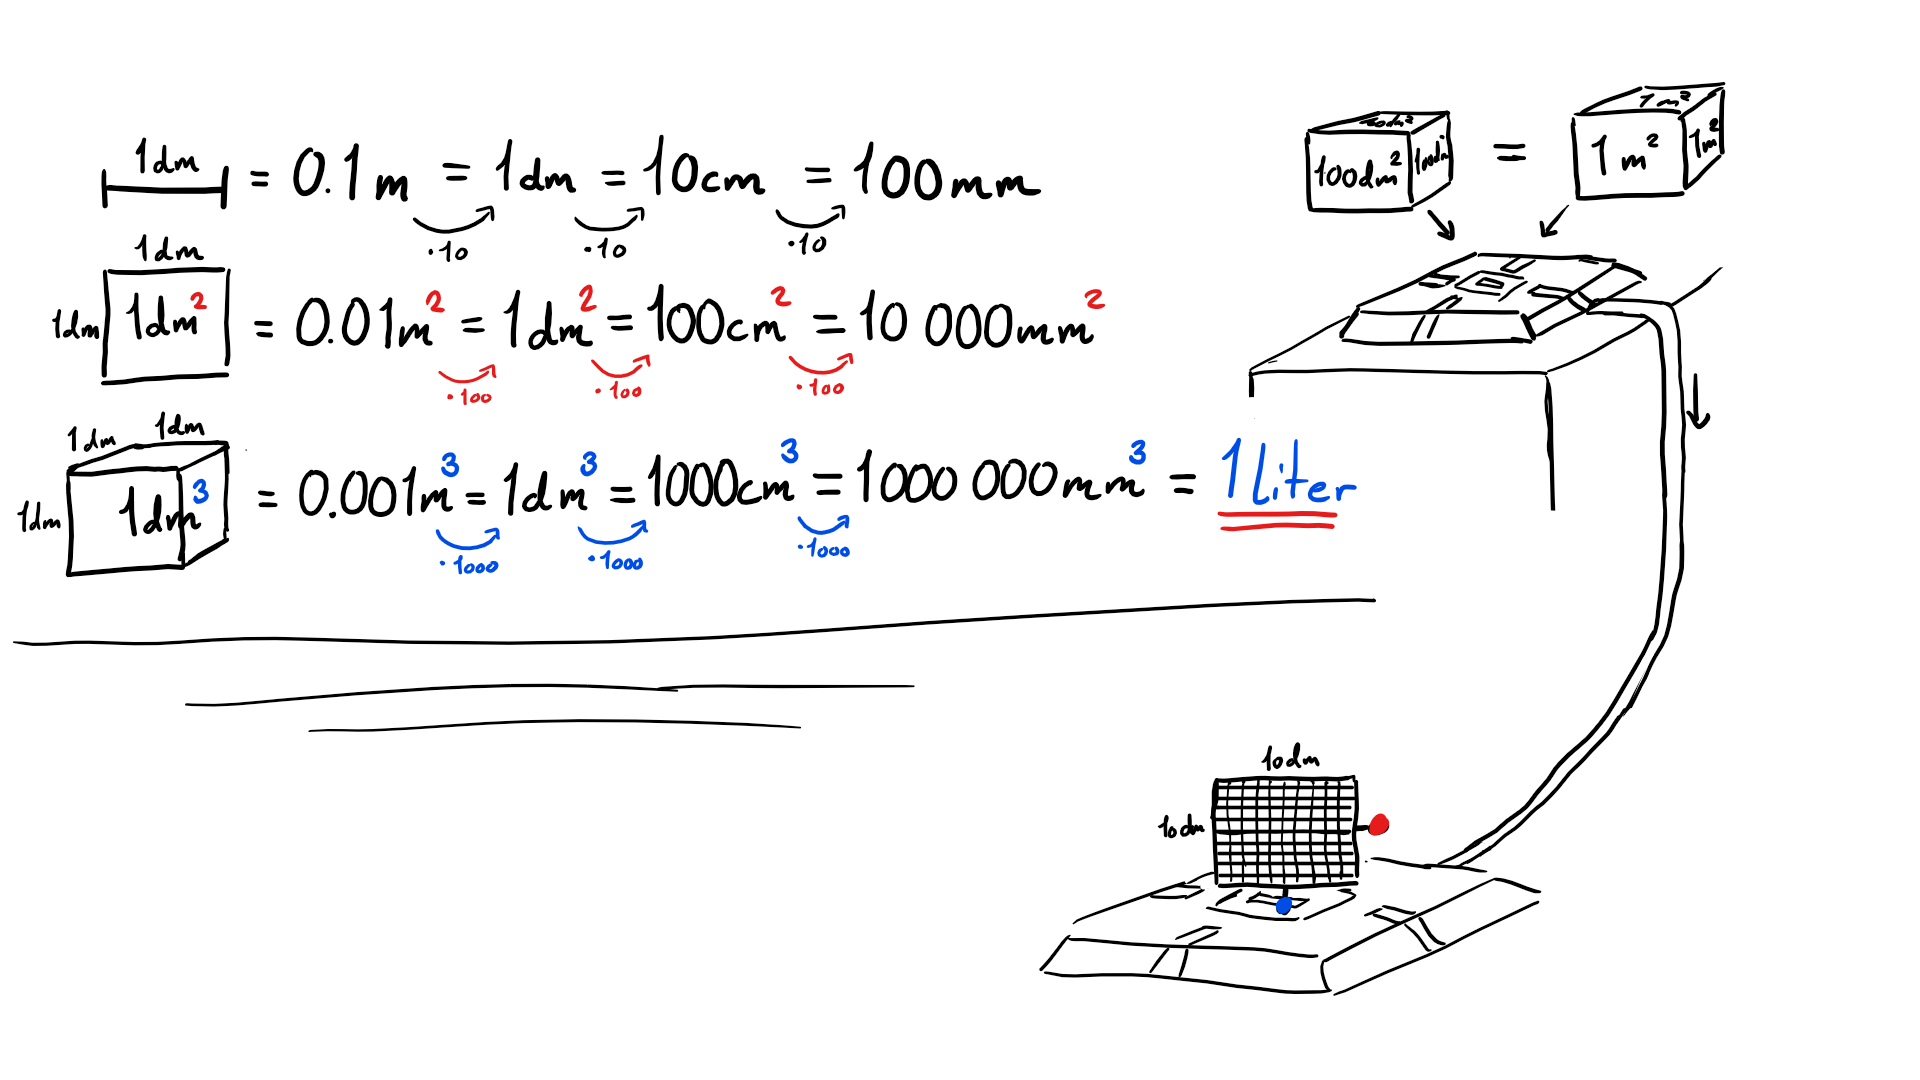 1dm = 0.1m = 1dm = 10cm = 100mm
·10 ·10 ·10
1dm
1dm 1dm² = 0.01m² = 1dm² = 100cm² = 10 000mm²
·100 ·100 ·100
1dm 1dm
1dm 1dm³ = 0.001m³ = 1dm³ = 1000cm³ = 1000 000mm³ = 1 liter
·1000 ·1000 ·1000
100dm² = 1m²
100dm² 1m² 1m²
10dm
10dm